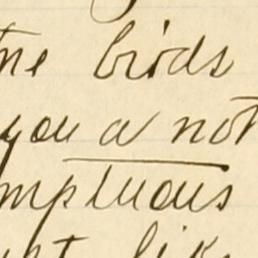 the birds
you a not
mptuous
like